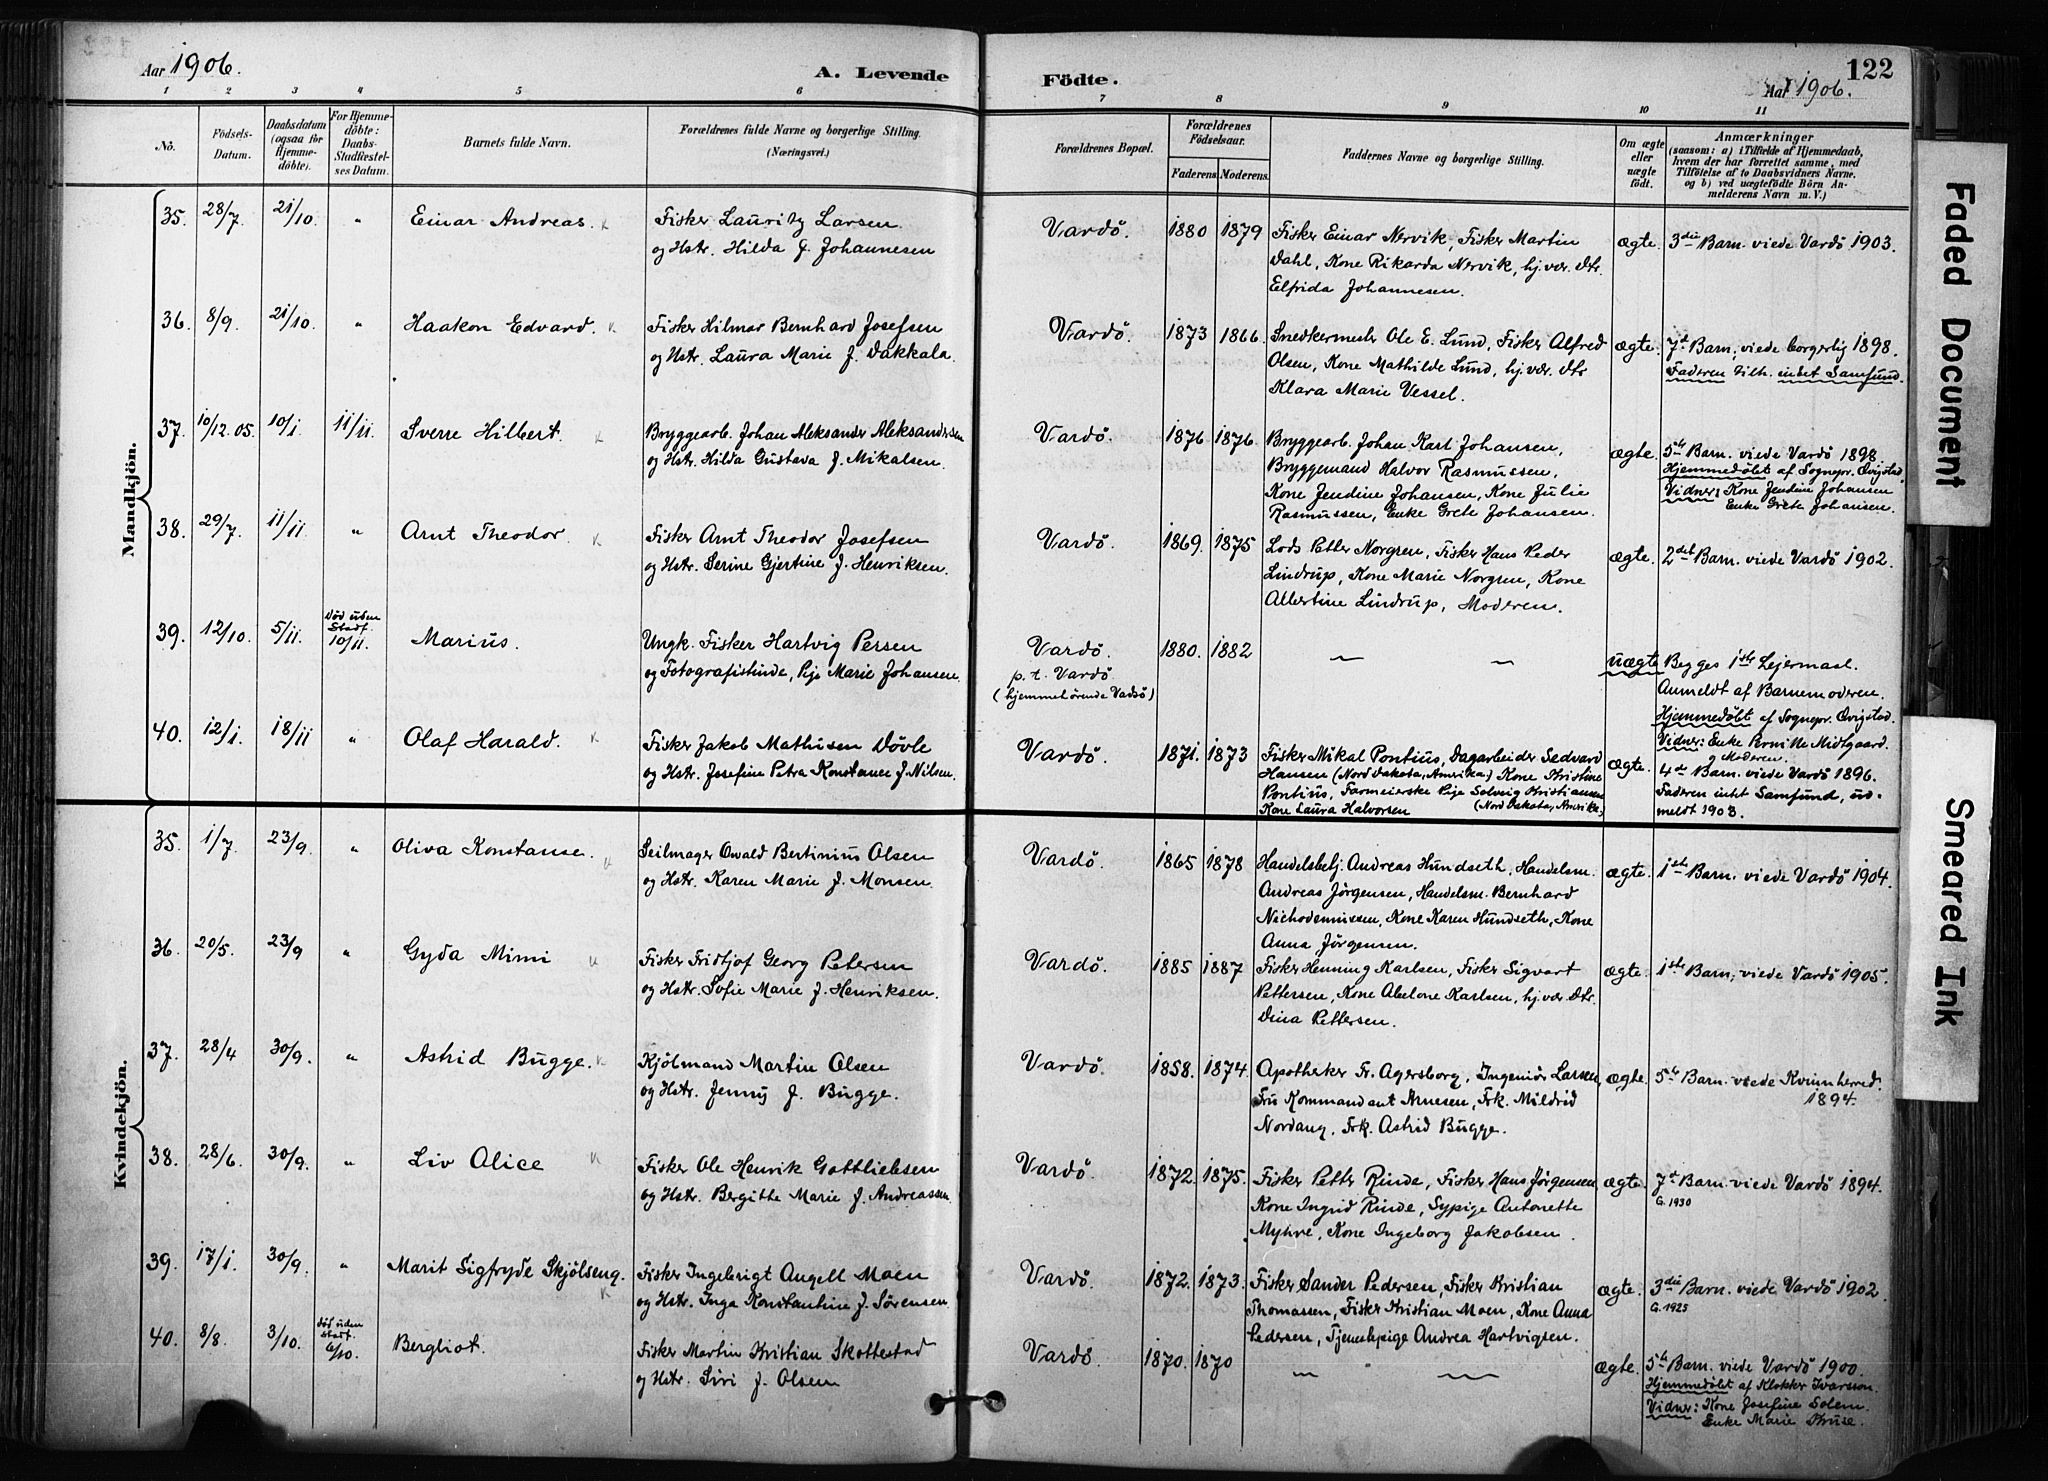 Aar 1906.
A. Levende
Födte.
122
Aar 1906.
1 2 3 4 5 6 7 8 9 10 11
Nö.
Födsels-Datum.
Daabsdatum (ogsaa för Hjemmedöbte).
For Hjemmedöbte: Daabs-Stadfæstelses Datum.
Barnets fulde Navn.
Forældrenes fulde Navne og borgerlige Stilling.
(Næringsvei.)
Forældrenes Bopæl.
Forældrenes Födselsaar.
Faderens. Moderens.
Faddernes Navne og borgerlige Stilling.
Om ægte eller uægte födt.
Anmærkninger
(saasom: a) i Tilfælde af Hjemmedaab,
hvem der har forrettet samme, med
Tilföielse af to Daabsvidners Navne.
og b) ved uægtefödte Börn An-
melderens Navn m. V.)
Mandkjön.
35. 28/7. 21/10. " Einar Andreas. Fisker Lauritz Larsen
og Hstr. Hilda f. Johannesen
Vardö. 1880 1879 Fisker Einar Nervik, Fisker Martin
Dahl, Kone Rikarda Nervik, hj.vær. Dtr.
Elfrida Johannesen.
ægte. 3die Barn. viede Vardö 1903.
36. 8/9. 21/10. " Haakon Edvard. Fisker Hilmar Bernhard Josefsen
og Hstr. Laura Marie f. Dakkala.
Vardö. 1873 1866. Snedkermester Ole E. Lund, Fisker Alfred
Olsen, Kone Mathilde Lund, hj.vær. Dtr
Klara Marie Vessel.
ægte. 7d Barn, viede borgerlig 1898.
Faderen tilh. intet Samfund.
37. 10/12.05. 10/1. 11/11. Sverre Hilbert. Bryggearb. Johan Aleksander Aleksandersen
og Hstr. Hilda Gustava f. Mikalsen.
Vardö. 1876 1876. Bryggearb. Johan Karl Johansen,
Bryggemand Halvor Rasmussen,
Kone Jendine Johansen, Kone Julie
Rasmussen, Enke Grete Johansen.
ægte. 5te Barn. viede Vardö 1898.
Hjemmedöbt af Sognepr. Qvigstad.
Vidner: Kone Jendine Johansen
Enke Grete Johansen.
38. 29/7. 11/11. " Arnt Theodor. Fisker Arnt Theodor Josefsen
og Hstr. Serine Gjertine f. Henriksen.
Vardö. 1869. 1875 Lods Petter Norgren, Fisker Hans Peder
Lindrup, Kone Marie Norgren, Kone
Albertine Lindrup, Moderen.
ægte. 2det Barn. viede Vardö 1902.
39. 12/10. 5/11. Död uden Stadf. 10/11. Marius. Ungk. Fisker Hartvig Persen
og Fotografistinde, Pige Marie Johansen.
Vardö.
p. t. Vardö
(hjemmehörende Vadsö)
1880. 1882
uægte Begges 1ste Lejermaal.
Anmeldt af Barnemoderen.
Hjemmedöbt af Sognepr. Qvigstad.
Vidner: Enke Pernille Midtgaard.
og Moderen.
40. 12/1. 18/11 " Olaf Harald. Fisker Jakob Mathisen Dövle
og Hstr. Josefine Petra Konstance f. Nilsen.
Vardö. 1871. 1873 Fisker Mikal Pontius, Dagarbeider Sedvard
Hansen (Nord Dakota, Amerika) Kone Kristine
Pontius, Farmeierske Pige Solveig Kristiansen
Kone Laura Halvorsen (Nord Dakota, Amerika,)
ægte. 4de Barn. viede Vardö 1896.
Faderen intet Samfund, ud-
meldt 1903.
Kvindekjön.
35. 1/7. 23/9. " Oliva Konstanse. Seilmager Osvald Bertinius Olsen
og Hstr. Karen Marie f. Monsen.
Vardö. 1865 1878 Handelsbetj. Andreas Hundseth, Handelsm.
Andreas Jørgensen, Handelsm. Bernhard
Nichodemussen, Kone Karen Hundseth, Kone
Anna Jørgensen.
ægte. 1ste Barn. viede Vardö 1904.
36. 20/5. 23/9 " Gyda Mimi Fisker Fridtjof Georg Petersen
og Hstr. Sofie Marie f. Henriksen.
Vardö. 1885 1887 Fisker Henning Karlsen, Fisker Sigvart
Pettersen, Kone Abelone Karlsen, hj.vær. Dtr.
Dina Pettersen.
ægte. 1ste Barn, viede Vardö 1905.
37. 28/4 30/9. " Astrid Bugge. Kjölmand Martin Olsen
og Hstr. Jenny f. Bugge.
Vardö. 1858. 1874. Apotheker Fr. Agersborg, Ingeniör Larsen,
Fru Kommandant Arnesen, Frk. Mildrid
Nordang, Frk. Astrid Bugge.
ægte. 5te Barn. viede Kvinnherred.
1894.
38. 28/6. 30/9. " Liv Alice Fisker Ole Henrik Gottliebsen
og Hstr. Bergitte Marie f. Andreassen
Vardö. 1872. 1875. Fisker Petter Rinde, Fisker Hans Jørgensen,
Kone Ingrid Rinde, Sypige Antonette
Myhre, Kone Ingeborg Jakobsen.
ægte. 7d Barn. viede Vardö 1894.
G. 1930
39. 17/1. 30/9. " Marit Sigfryde Skjölseng. Fisker Ingebrigt Angell Moen
og Hstr. Inga Konstantine f. Sørensen.
Vardö. 1872. 1873. Fisker Sander Pedersen, Fisker Kristian
Thomassen, Fisker Kristian Moen, Kone Anna
Pedersen, Tjenestepige Andrea Hartvigsen.
ægte. 3die Barn. viede Vardö 1902.
G. 1925
40. 8/8. 3/10. död uden Stadf. 6/10. Bergliot. Fisker Martin Kristian Skottestad
og Hstr. Siri f. Olsen
Vardö. 1870. 1870
ægte. 5te Barn. viede Vardö 1900.
Hjemmedöbt af Klokker Ivarsson.
Vidner: Kone Josefine Solem.
Enke Marie Kruse.
Faded Document
Smeared Ink